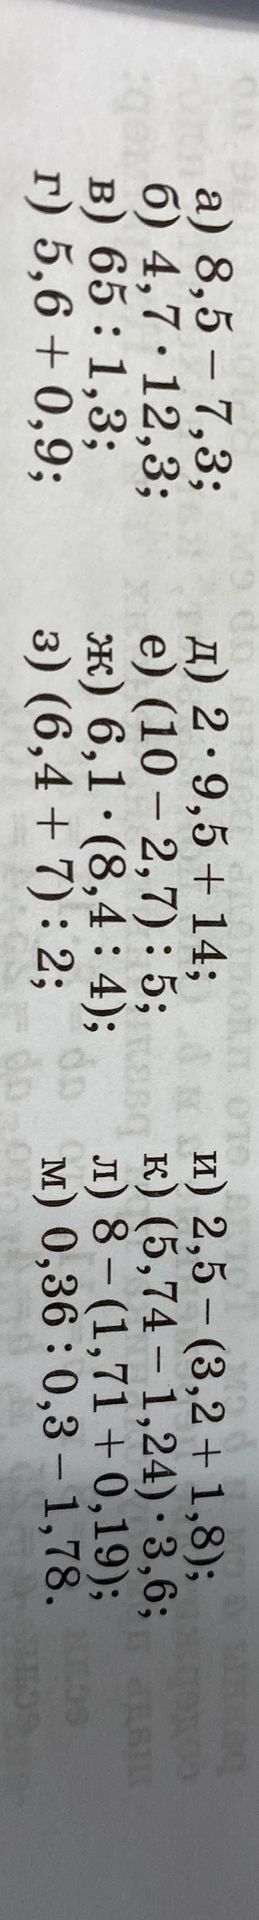 а) 8,5 − 7,3; д) 2 · 9,5 + 14; и) 2,5 − (3,2 + 1,8);
б) 4,7 · 12,3; е) (10 − 2,7) : 5; к) (5,74 − 1,24) · 3,6;
в) 65 : 1,3; ж) 6,1 · (8,4 : 4); л) 8 − (1,71 + 0,19);
г) 5,6 + 0,9; з) (6,4 + 7) : 2; м) 0,36 : 0,3 − 1,78.